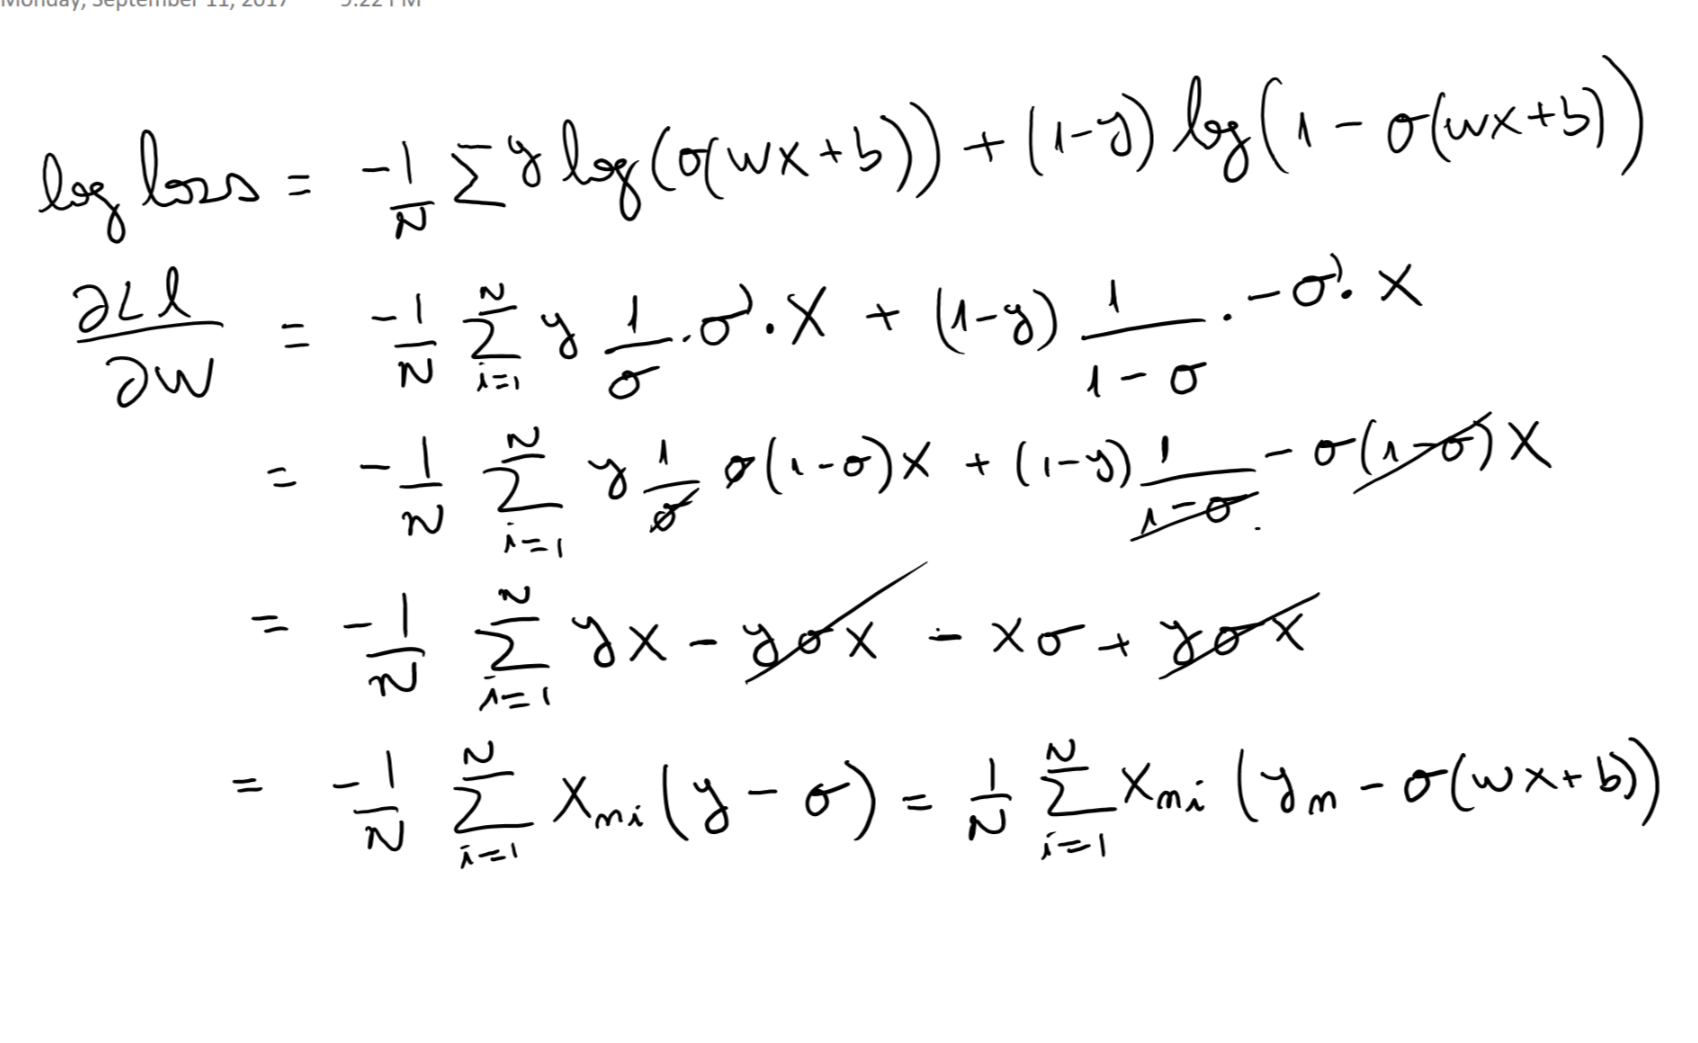 Monday, September 11, 2017 9:22 PM
log loss = -1/N Σ y log(σ(wx+b)) + (1-y) log(1 - σ(wx+b))
∂Ll/∂w = -1/N Σ_{i=1}^{N} y 1/σ · σ' · X + (1-y) 1/(1-σ) · -σ' · X
= -1/N Σ_{i=1}^{N} y 1/σ σ(1-σ)X + (1-y) 1/(1-σ) - σ(1-σ) X
= -1/N Σ_{i=1}^{N} yx - yσx - xσ + yσx
= -1/N Σ_{i=1}^{N} X_{ni} (y - σ) = 1/N Σ_{i=1}^{N} X_{ni} (y_n - σ(wx+b))